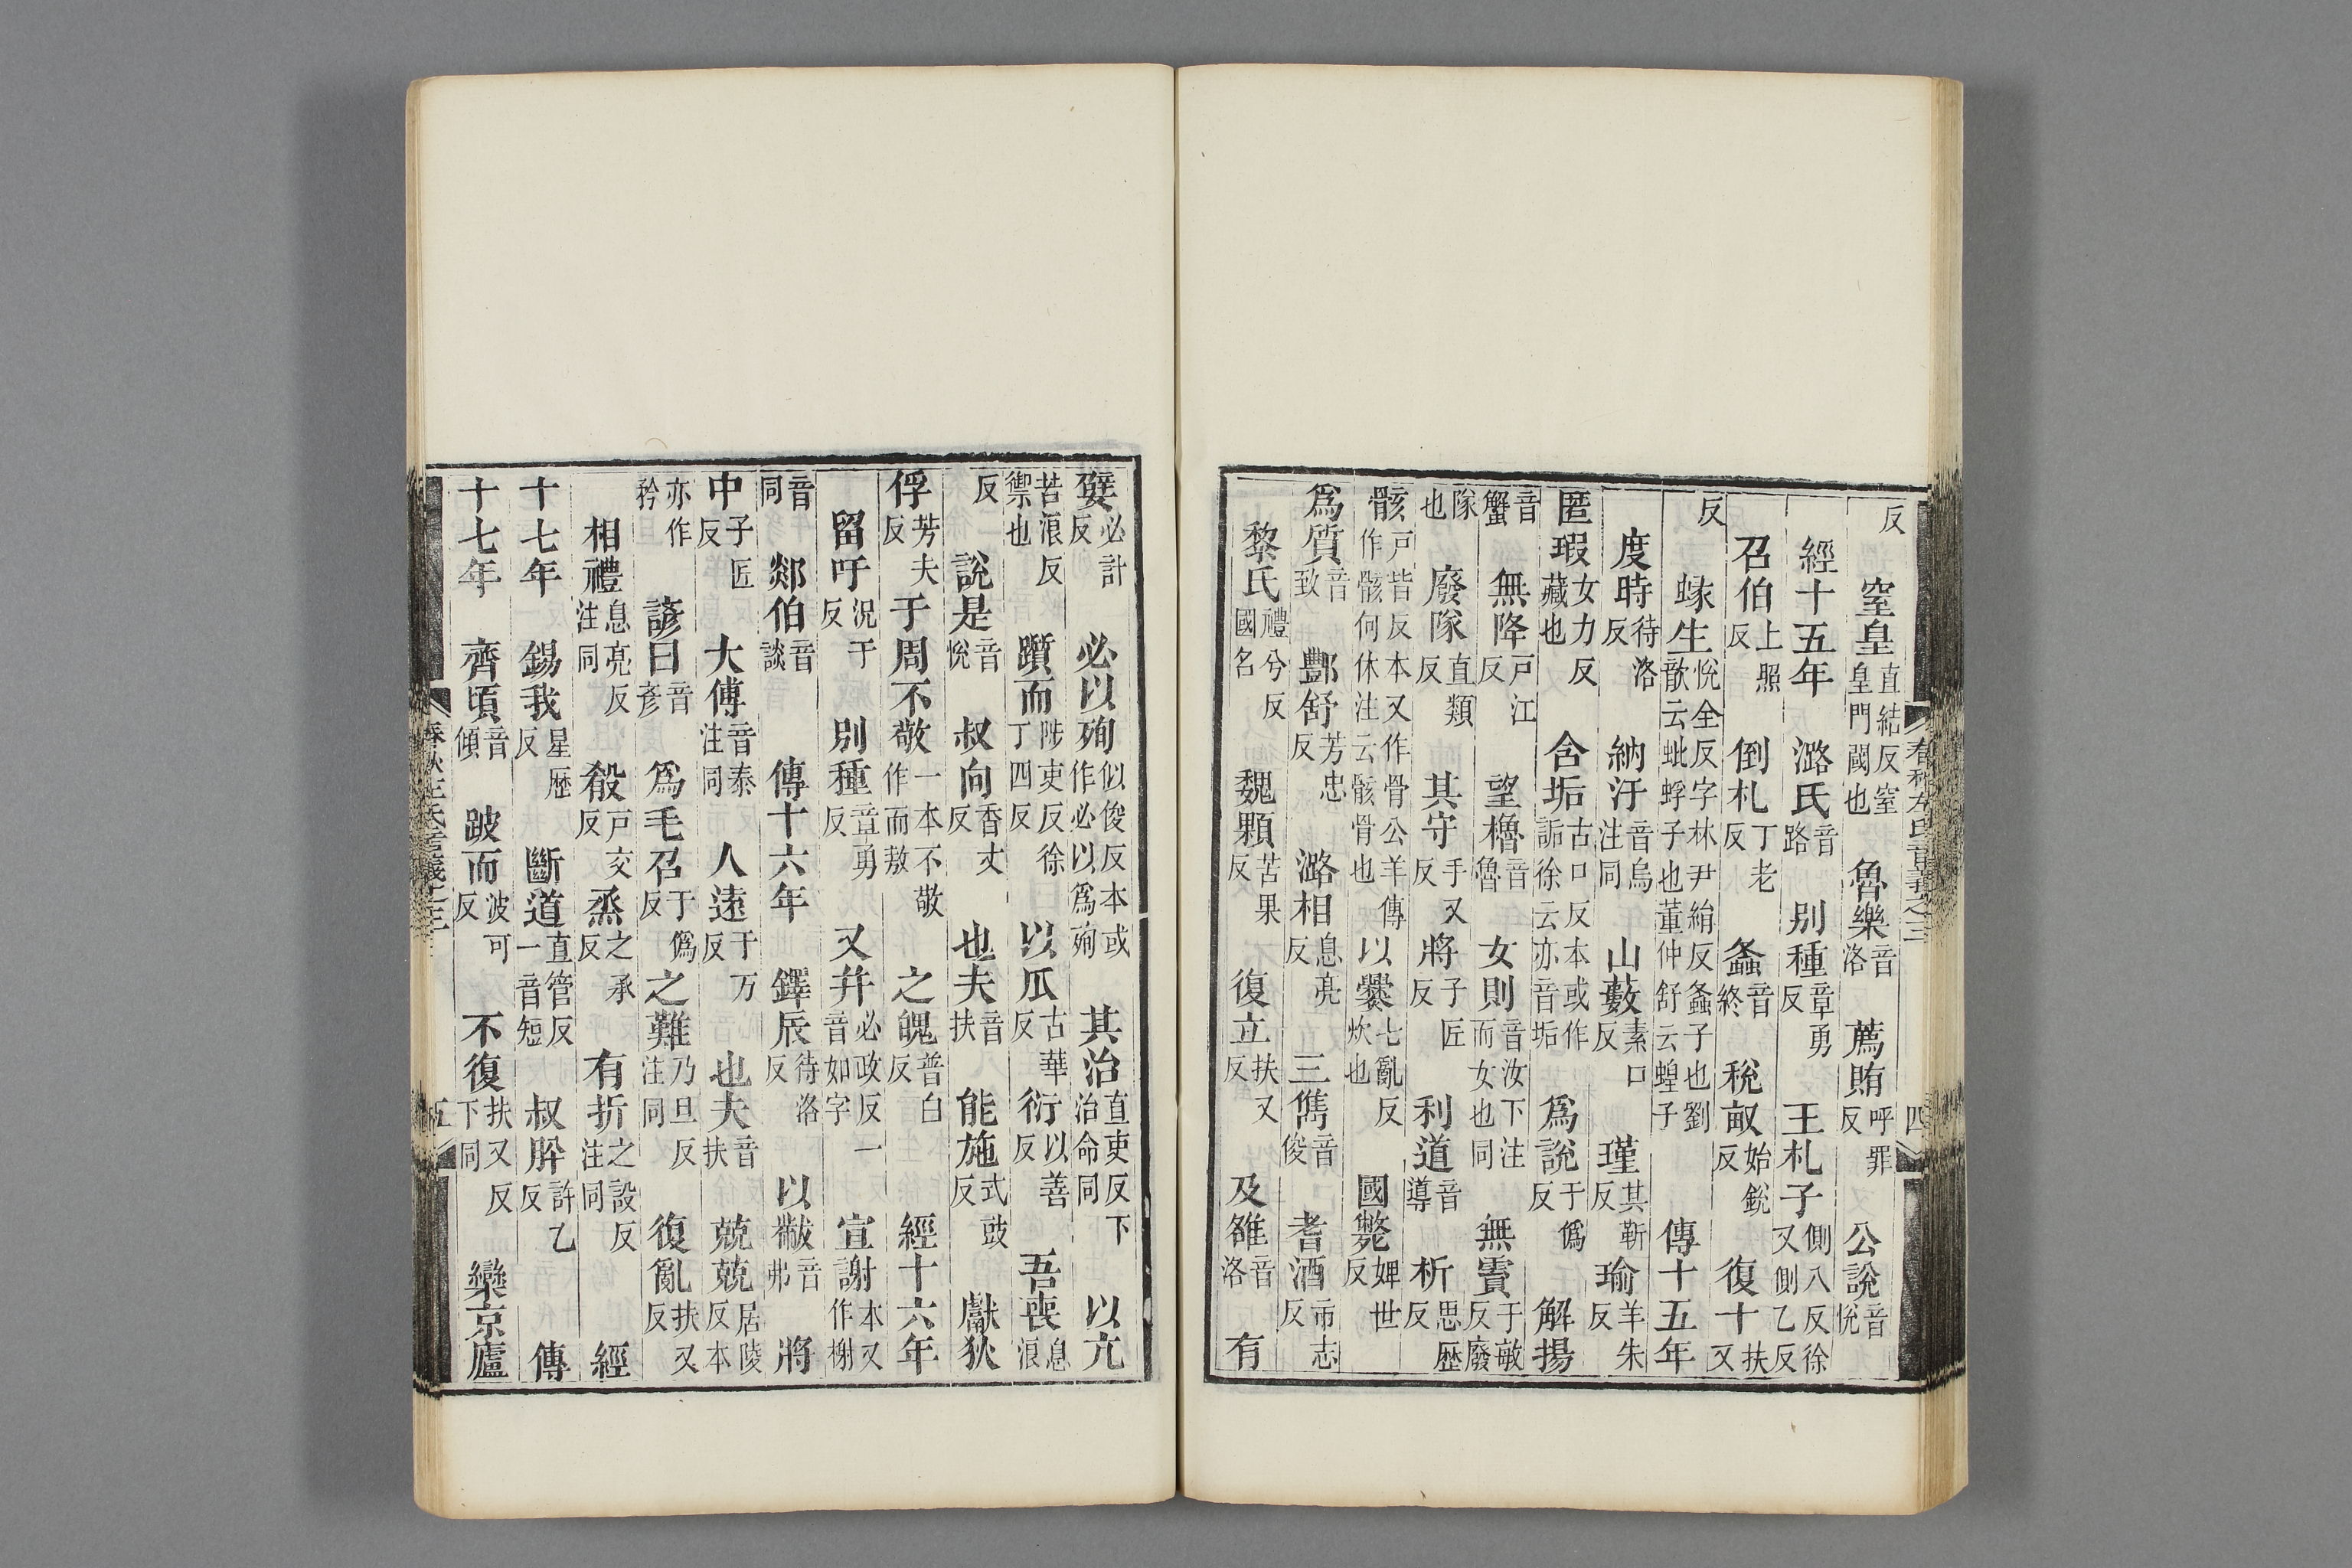 反　窒皇直結反窒皇門闑也　魯樂音洛　薦賄呼罪反　公說音悅
經十五年　潞氏音路　別種章勇反　王札子側八反徐又側乙反
召伯上照反　倒札丁老反　螽音終　稅畝始銳反　復十扶又
反　蝝生悅全反字林尹絹反螽子也劉歆云蚍蜉子也董仲舒云蝗子　傳十五年
度時待洛反　納汙音烏注同　山藪素口反　瑾其靳反　瑜羊朱反
匿瑕女力反藏也　含垢古口反本或作詬徐云亦音垢　爲說于僞反　解揚
音蟹　無降戶江反　望櫓音魯　女則音汝下注而女也同　無霣于敏反廢
隊也　廢隊直類反　其守手又反　將子匠反　利道音導　析思歷反
骸戶皆反本又作骨公羊傳作骸何休注云骸骨也　以爨七亂反炊也　國斃婢世反
爲質音致　酆舒芳忠反　潞相息亮反　三儁音俊　耆酒市志反
黎氏禮兮反國名　魏顆苦果反　復立扶又反　及雒音洛　有
春秋左氏音義之三　四
嬖必計反　必以殉似俊反本或作必以爲殉　其治直吏反下治命同　以亢
苦浪反禦也　躓而陟吏反徐丁四反　以瓜古華反　衍以善反　吾喪息浪
反　說是音悅　叔向香丈反　也夫音扶　能施式豉反　獻狄
俘芳夫反　于周不敬一本不敬作而敖　之魄普白反　經十六年
留吁況于反　別種章勇反　又并必政反一音如字　宣謝本又作榭
音同　郯伯音談　傳十六年　鐸辰待洛反　以黻音弗　將
中子匠反　大傅音泰注同　人遠于万反　也夫音扶　兢兢居陵反本
亦作矜　諺曰音彥　爲毛召于僞反　之難乃旦反注同　復亂扶又反
相禮息亮反注同　殽戶交反　烝之承反　有折之設反注同　經
十七年　錫我星歷反　斷道直管反一音短　叔肸許乙反　傳
十七年　齊頃音傾　跛而波可反　不復扶又反下同　欒京廬
春秋左氏音義之三　五